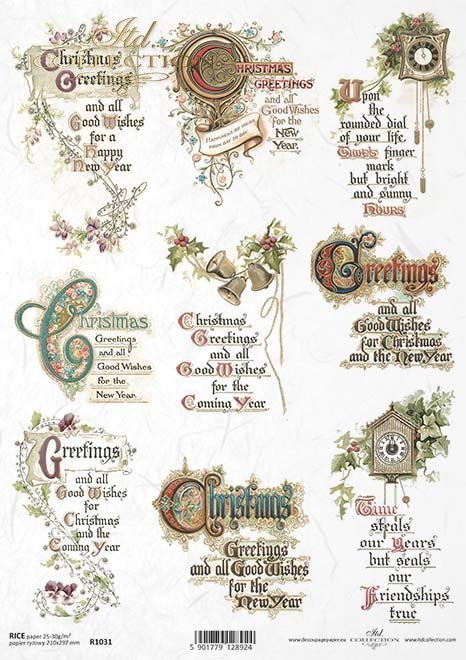 itd.
COLLECTION
Christmas
Greetings
and all
Good Wishes
for a
Happy
New Year
Christmas
Greetings
and all
Good Wishes
for the
New
Year.
Happiness be yours
from day to day.
Upon
the
rounded dial
of your life,
Time's finger
mark
but bright
and sunny
hours
Christmas
Greetings
and all
Good Wishes
for the
New Year.
Christmas
Greetings
and all
Good Wishes
for the
Coming Year
Greetings
and all
Good Wishes
for Christmas
and the New Year
Greetings
and all
Good Wishes
for
Christmas
and the
Coming Year
Christmas
Greetings
and all Good Wishes
for the
New Year
Time
steals
our Years
but seals
our
Friendships
true
RICE paper 25-30g/m²
papier ryżowy 210x297 mm
R1031
5 901779 128924
www.decoupagepaper.eu
itd.
COLLECTION
www.itdcollection.com